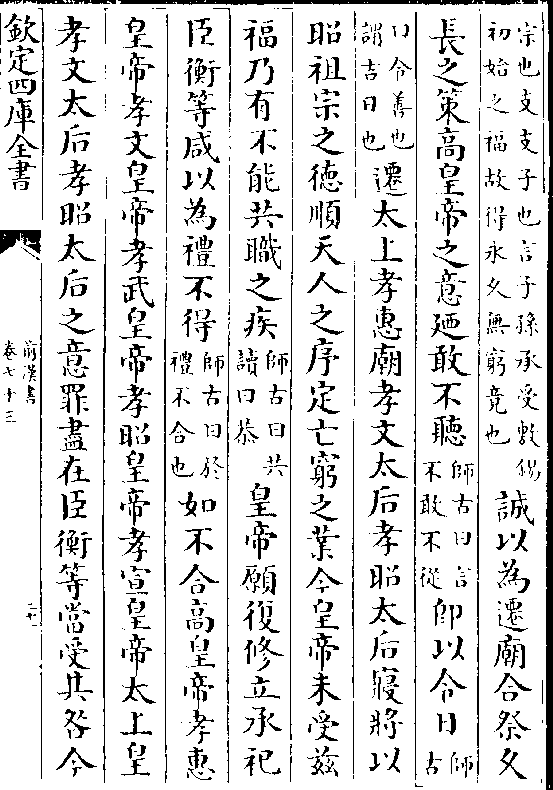 宗也支支子也言子孫承受敷錫初始之福故得永久無窮竟也誠以為遷廟合祭久
長之策高皇帝之意廼敢不聽師古曰言不敢不從即以令日師古
曰令善也謂吉日也遷太上孝惠廟孝文太后孝昭太后寢將以
昭祖宗之德順天人之序定亡窮之業今皇帝未受茲
福乃有不能共職之疾師古曰共讀曰恭皇帝願復修立承祀
臣衡等咸以為禮不得師古曰於禮不合也如不合高皇帝孝惠
皇帝孝文皇帝孝武皇帝孝昭皇帝孝宣皇帝太上皇
孝文太后孝昭太后之意罪盡在臣衡等當受其咎今
欽定四庫全書
前漢書
卷七十三